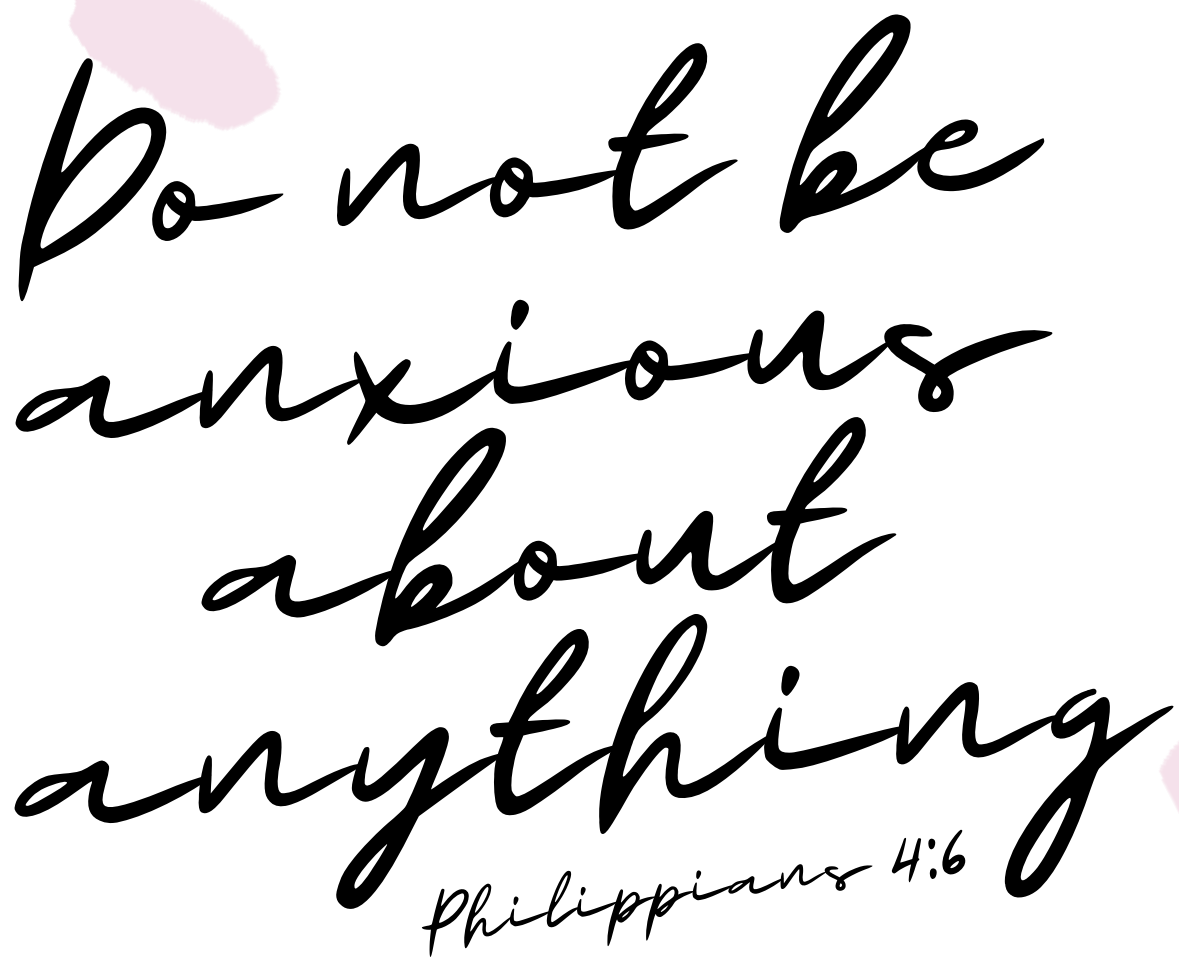 Do not be
anxious
about
anything
Philippians 4:6